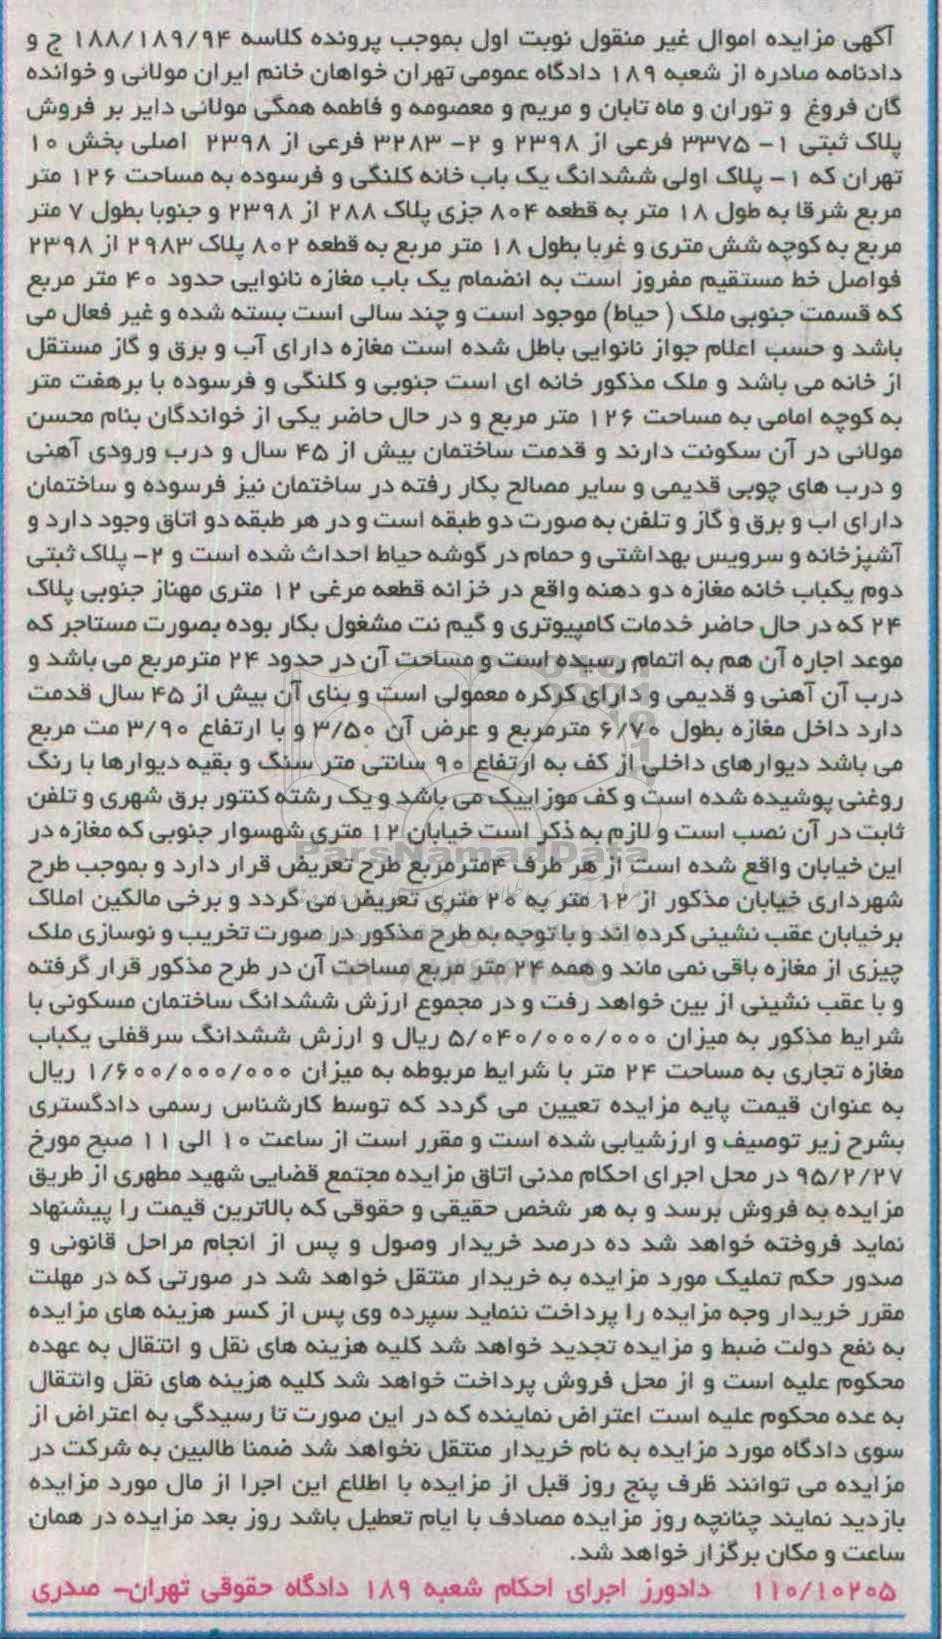 آگهی مزایده اموال غیر منقول نوبت اول بموجب پرونده کلاسه ۱۸۸/۱۸۹/۹۴ ج و
دادنامه صادره از شعبه ۱۸۹ دادگاه عمومی تهران خواهان خانم ایران مولانی و خوانده
گان فروغ و توران و ماه تابان و مریم و معصومه و فاطمه همگی مولائی دایر بر فروش
پلاک ثبتی ۱- ۳۳۷۵ فرعی از ۲۳۹۸ و ۲- ۳۲۸۳ فرعی از ۲۳۹۸ اصلی بخش ۱۰
تهران که ۱- پلاک اولی ششدانگ یک باب خانه کلنگی و فرسوده به مساحت ۱۲۶ متر
مربع شرقا به طول ۱۸ متر به قطعه ۸۰۴ جزی پلاک ۲۸۸ از ۲۳۹۸ و جنوبا بطول ۷ متر
مربع به کوچه شش متری و غربا بطول ۱۸ متر مربع به قطعه ۸۰۲ پلاک ۲۹۸۳ از ۲۳۹۸
فواصل خط مستقیم مفروز است به انضمام یک باب مغازه نانوایی حدود ۴۰ متر مربع
که قسمت جنوبی ملک ( حیاط) موجود است و چند سالی است بسته شده و غیر فعال می
باشد و حسب اعلام جواز نانوایی باطل شده است مغازه دارای آب و برق و گاز مستقل
از خانه می باشد و ملک مذکور خانه ای است جنوبی و کلنگی و فرسوده با برهفت متر
به کوچه امامی به مساحت ۱۲۶ متر مربع و در حال حاضر یکی از خواندگان بنام محسن
مولائی در آن سکونت دارند و قدمت ساختمان بیش از ۴۵ سال و درب ورودی آهنی
و درب های چوبی قدیمی و سایر مصالح بکار رفته در ساختمان نیز فرسوده و ساختمان
دارای اب و برق و گاز و تلفن به صورت دو طبقه است و در هر طبقه دو اتاق وجود دارد و
آشپزخانه و سرویس بهداشتی و حمام در گوشه حیاط احداث شده است و ۲- پلاک ثبتی
دوم یکباب خانه مغازه دو دهنه واقع در خزانه قطعه مرغی ۱۲ متری مهناز جنوبی پلاک
۲۴ که در حال حاضر خدمات کامپیوتری و گیم نت مشغول بکار بوده بصورت مستاجر که
موعد اجاره آن هم به اتمام رسیده است و مساحت آن در حدود ۲۴ مترمربع می باشد و
درب آن آهنی و قدیمی و دارای کرکره معمولی است و بنای آن بیش از ۴۵ سال قدمت
دارد داخل مغازه بطول ۶/۷۰ مترمربع و عرض آن ۳/۵۰ و با ارتفاع ۳/۹۰ مت مربع
می باشد دیوارهای داخلی از کف به ارتفاع ۹۰ سانتی متر سنگ و بقیه دیوارها با رنگ
روغنی پوشیده شده است و کف موزاییک می باشد و یک رشته کنتور برق شهری و تلفن
ثابت در آن نصب است و لازم به ذکر است خیابان ۱۲ متری شهسوار جنوبی که مغازه در
این خیابان واقع شده است از هر طرف ۴مترمربع طرح تعریض قرار دارد و بموجب طرح
شهرداری خیابان مذکور از ۱۲ متر به ۲۰ متری تعریض می گردد و برخی مالکین املاک
برخیابان عقب نشینی کرده اند و با توجه به طرح مذکور در صورت تخریب و نوسازی ملک
چیزی از مغازه باقی نمی ماند و همه ۲۴ متر مربع مساحت آن در طرح مذکور قرار گرفته
و با عقب نشینی از بین خواهد رفت و در مجموع ارزش ششدانگ ساختمان مسکونی با
شرایط مذکور به میزان ۵/۰۴۰/۰۰۰/۰۰۰ ریال و ارزش ششدانگ سرقفلی یکباب
مغازه تجاری به مساحت ۲۴ متر با شرایط مربوطه به میزان ۱/۶۰۰/۰۰۰/۰۰۰ ریال
به عنوان قیمت پایه مزایده تعیین می گردد که توسط کارشناس رسمی دادگستری
بشرح زیر توصیف و ارزشیابی شده است و مقرر است از ساعت ۱۰ الی ۱۱ صبح مورخ
۹۵/۲/۲۷ در محل اجرای احکام مدنی اتاق مزایده مجتمع قضایی شهید مطهری از طریق
مزایده به فروش برسد و به هر شخص حقیقی و حقوقی که بالاترین قیمت را پیشنهاد
نماید فروخته خواهد شد ده درصد خریدار وصول و پس از انجام مراحل قانونی و
صدور حکم تملیک مورد مزایده به خریدار منتقل خواهد شد در صورتی که در مهلت
مقرر خریدار وجه مزایده را پرداخت ننماید سپرده وی پس از کسر هزینه های مزایده
به نفع دولت ضبط و مزایده تجدید خواهد شد کلیه هزینه های نقل و انتقال به عهده
محکوم علیه است و از محل فروش پرداخت خواهد شد کلیه هزینه های نقل وانتقال
به عده محکوم علیه است اعتراض نماینده که در این صورت تا رسیدگی به اعتراض از
سوی دادگاه مورد مزایده به نام خریدار منتقل نخواهد شد ضمنا طالبین به شرکت در
مزایده می توانند ظرف پنج روز قبل از مزایده با اطلاع این اجرا از مال مورد مزایده
بازدید نمایند چنانچه روز مزایده مصادف با ایام تعطیل باشد روز بعد مزایده در همان
ساعت و مکان برگزار خواهد شد.
۱۱۰/۱۰۲۰۵ دادورز اجرای احکام شعبه ۱۸۹ دادگاه حقوقی تهران- صدری
ParsNamadData